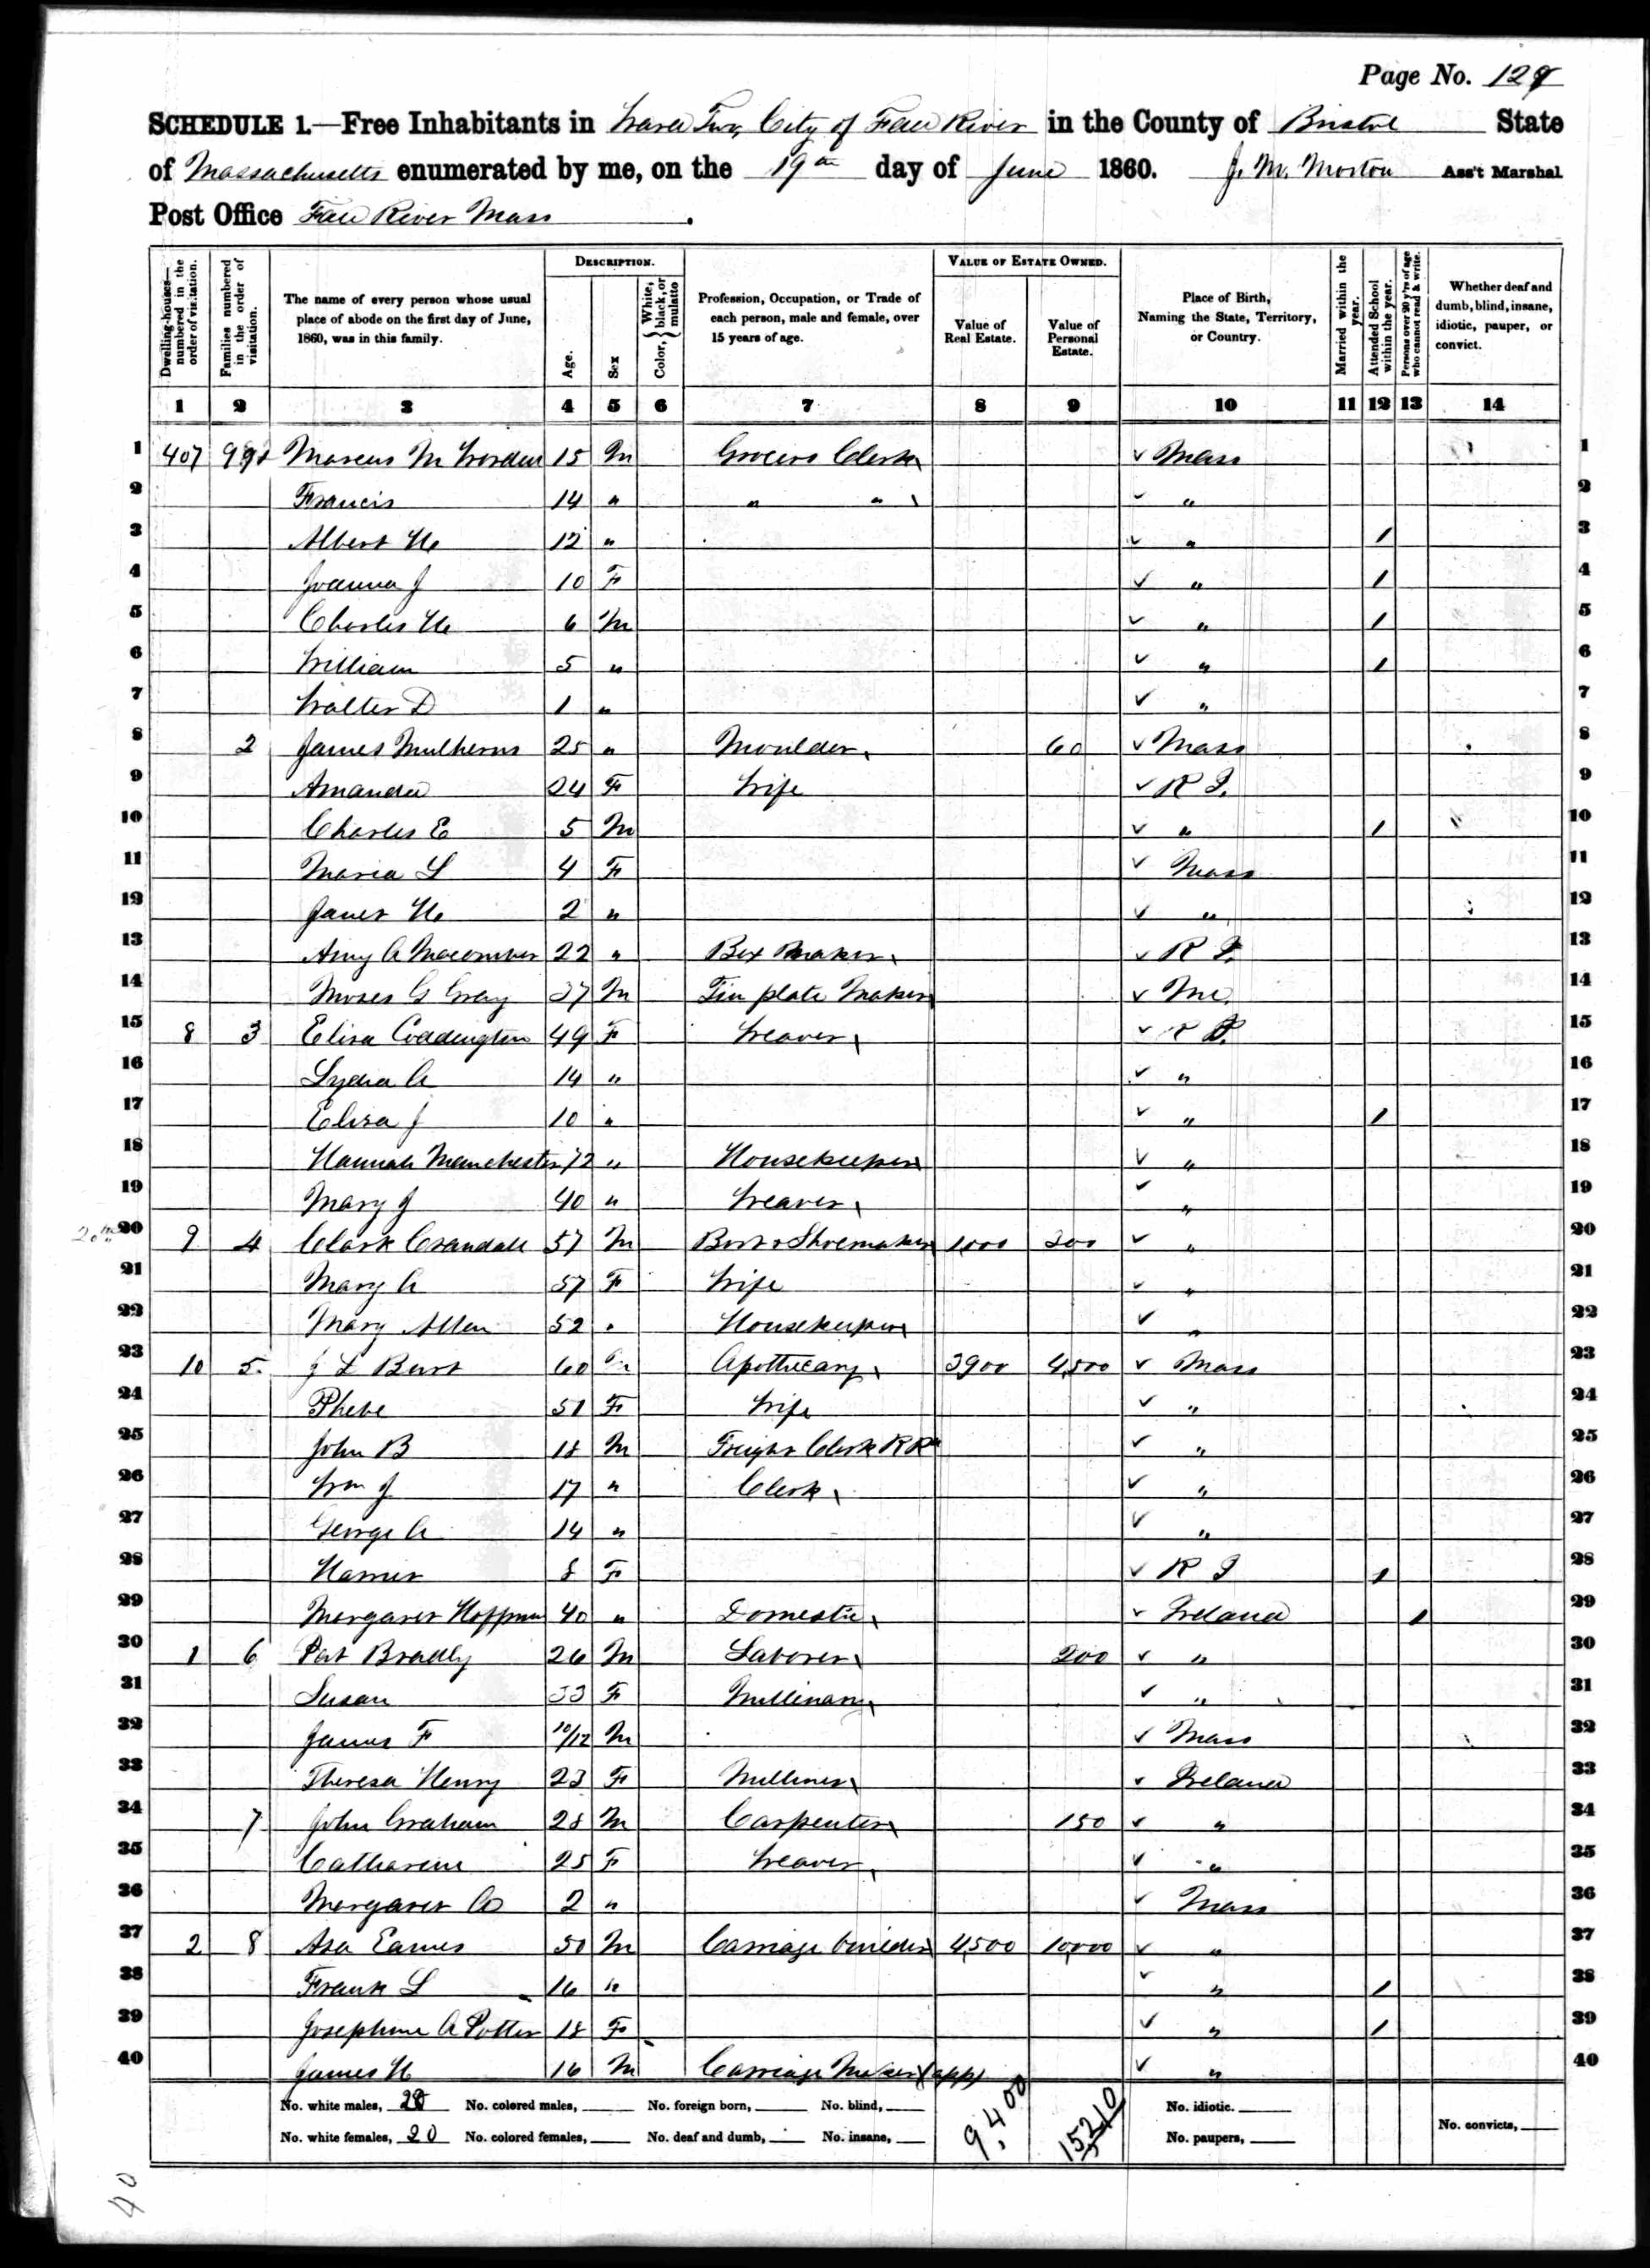 Page No. 129
SCHEDULE 1.—Free Inhabitants in Ward Two, City of Fall River in the County of Bristol State
of Massachusetts enumerated by me, on the 19th day of June 1860. J. M. Morton Ass't Marshal
Post Office Fall River Mass.
Dwelling-houses—numbered in the order of visitation.
Families numbered in the order of visitation.
The name of every person whose usual place of abode on the first day of June, 1860, was in this family.
DESCRIPTION.
Age.
Sex
Color, } White, black, or mulatto
Profession, Occupation, or Trade of each person, male and female, over 15 years of age.
VALUE OF ESTATE OWNED.
Value of Real Estate.
Value of Personal Estate.
Place of Birth, Naming the State, Territory, or Country.
Married within the year.
Attended School within the year.
Persons over 20 y'rs of age who cannot read & write.
Whether deaf and dumb, blind, insane, idiotic, pauper, or convict.
1 2 3 4 5 6 7 8 9 10 11 12 13 14
1 407 992 Marcus M Borden 15 M Grocers Clerk ✓ Mass 1
2 Francis 14 " " " ✓ " 2
3 Albert H 12 " ✓ " / 3
4 Joanna J 10 F ✓ " / 4
5 Charles H 6 M ✓ " / 5
6 William 5 " ✓ " / 6
7 Walter D 1 " ✓ " 7
8 2 James Mulherns 25 " Moulder 60 ✓ Mass 8
9 Amanda 24 F Wife ✓ R I. 9
10 Charles E 5 M ✓ " / 10
11 Maria L 4 F ✓ Mass 11
12 Janet H 2 " ✓ " 12
13 Amy A Macomber 22 " Box Maker ✓ R I. 13
14 Moses G Gray 37 M Tin plate Maker ✓ Me. 14
15 8 3 Eliza Coddington 49 F Weaver ✓ R I. 15
16 Lydia A 14 " ✓ " 16
17 Eliza J 10 " ✓ " / 17
18 Hannah Manchester 72 " Housekeeper ✓ " 18
19 Mary J 40 " Weaver ✓ " 19
20th 20 9 4 Clark Crandall 57 M Boot & Shoemaker 1000 200 ✓ " 20
21 Mary A 57 F Wife ✓ " 21
22 Mary Allen 52 " Housekeeper ✓ " 22
23 10 5 J L Burt 60 M Apothecary 3900 4,500 ✓ Mass 23
24 Phebe 51 F Wife ✓ " 24
25 John B 18 M Freight Clerk R R ✓ " 25
26 Wm J 17 " Clerk ✓ " 26
27 George A 14 " ✓ " 27
28 Harriet 8 F ✓ R I / 28
29 Margaret Hoffman 40 " Domestic ✓ Ireland / 29
30 1 6 Pat Bradly 26 M Laborer 200 ✓ " 30
31 Susan 33 F Millinary ✓ " 31
32 James F 10/12 M ✓ Mass 32
33 Theresa Henry 23 F Milliner ✓ Ireland 33
34 7 John Graham 28 M Carpenter 150 ✓ " 34
35 Catharine 25 F Weaver ✓ " 35
36 Margaret 2 " ✓ Mass 36
37 2 8 Asa Eames 50 M Carriage builder 4,500 10,000 ✓ " 37
38 Frank L 16 " ✓ " / 38
39 Josephine A Potter 18 F ✓ " / 39
40 James H 16 M Carriage Maker (app) ✓ " 40
No. white males, 20 No. colored males, No. foreign born, No. blind, 9,400 15,210 No. idiotic.
No. white females, 20 No. colored females, No. deaf and dumb, No. insane, No. paupers, No. convicts,
40